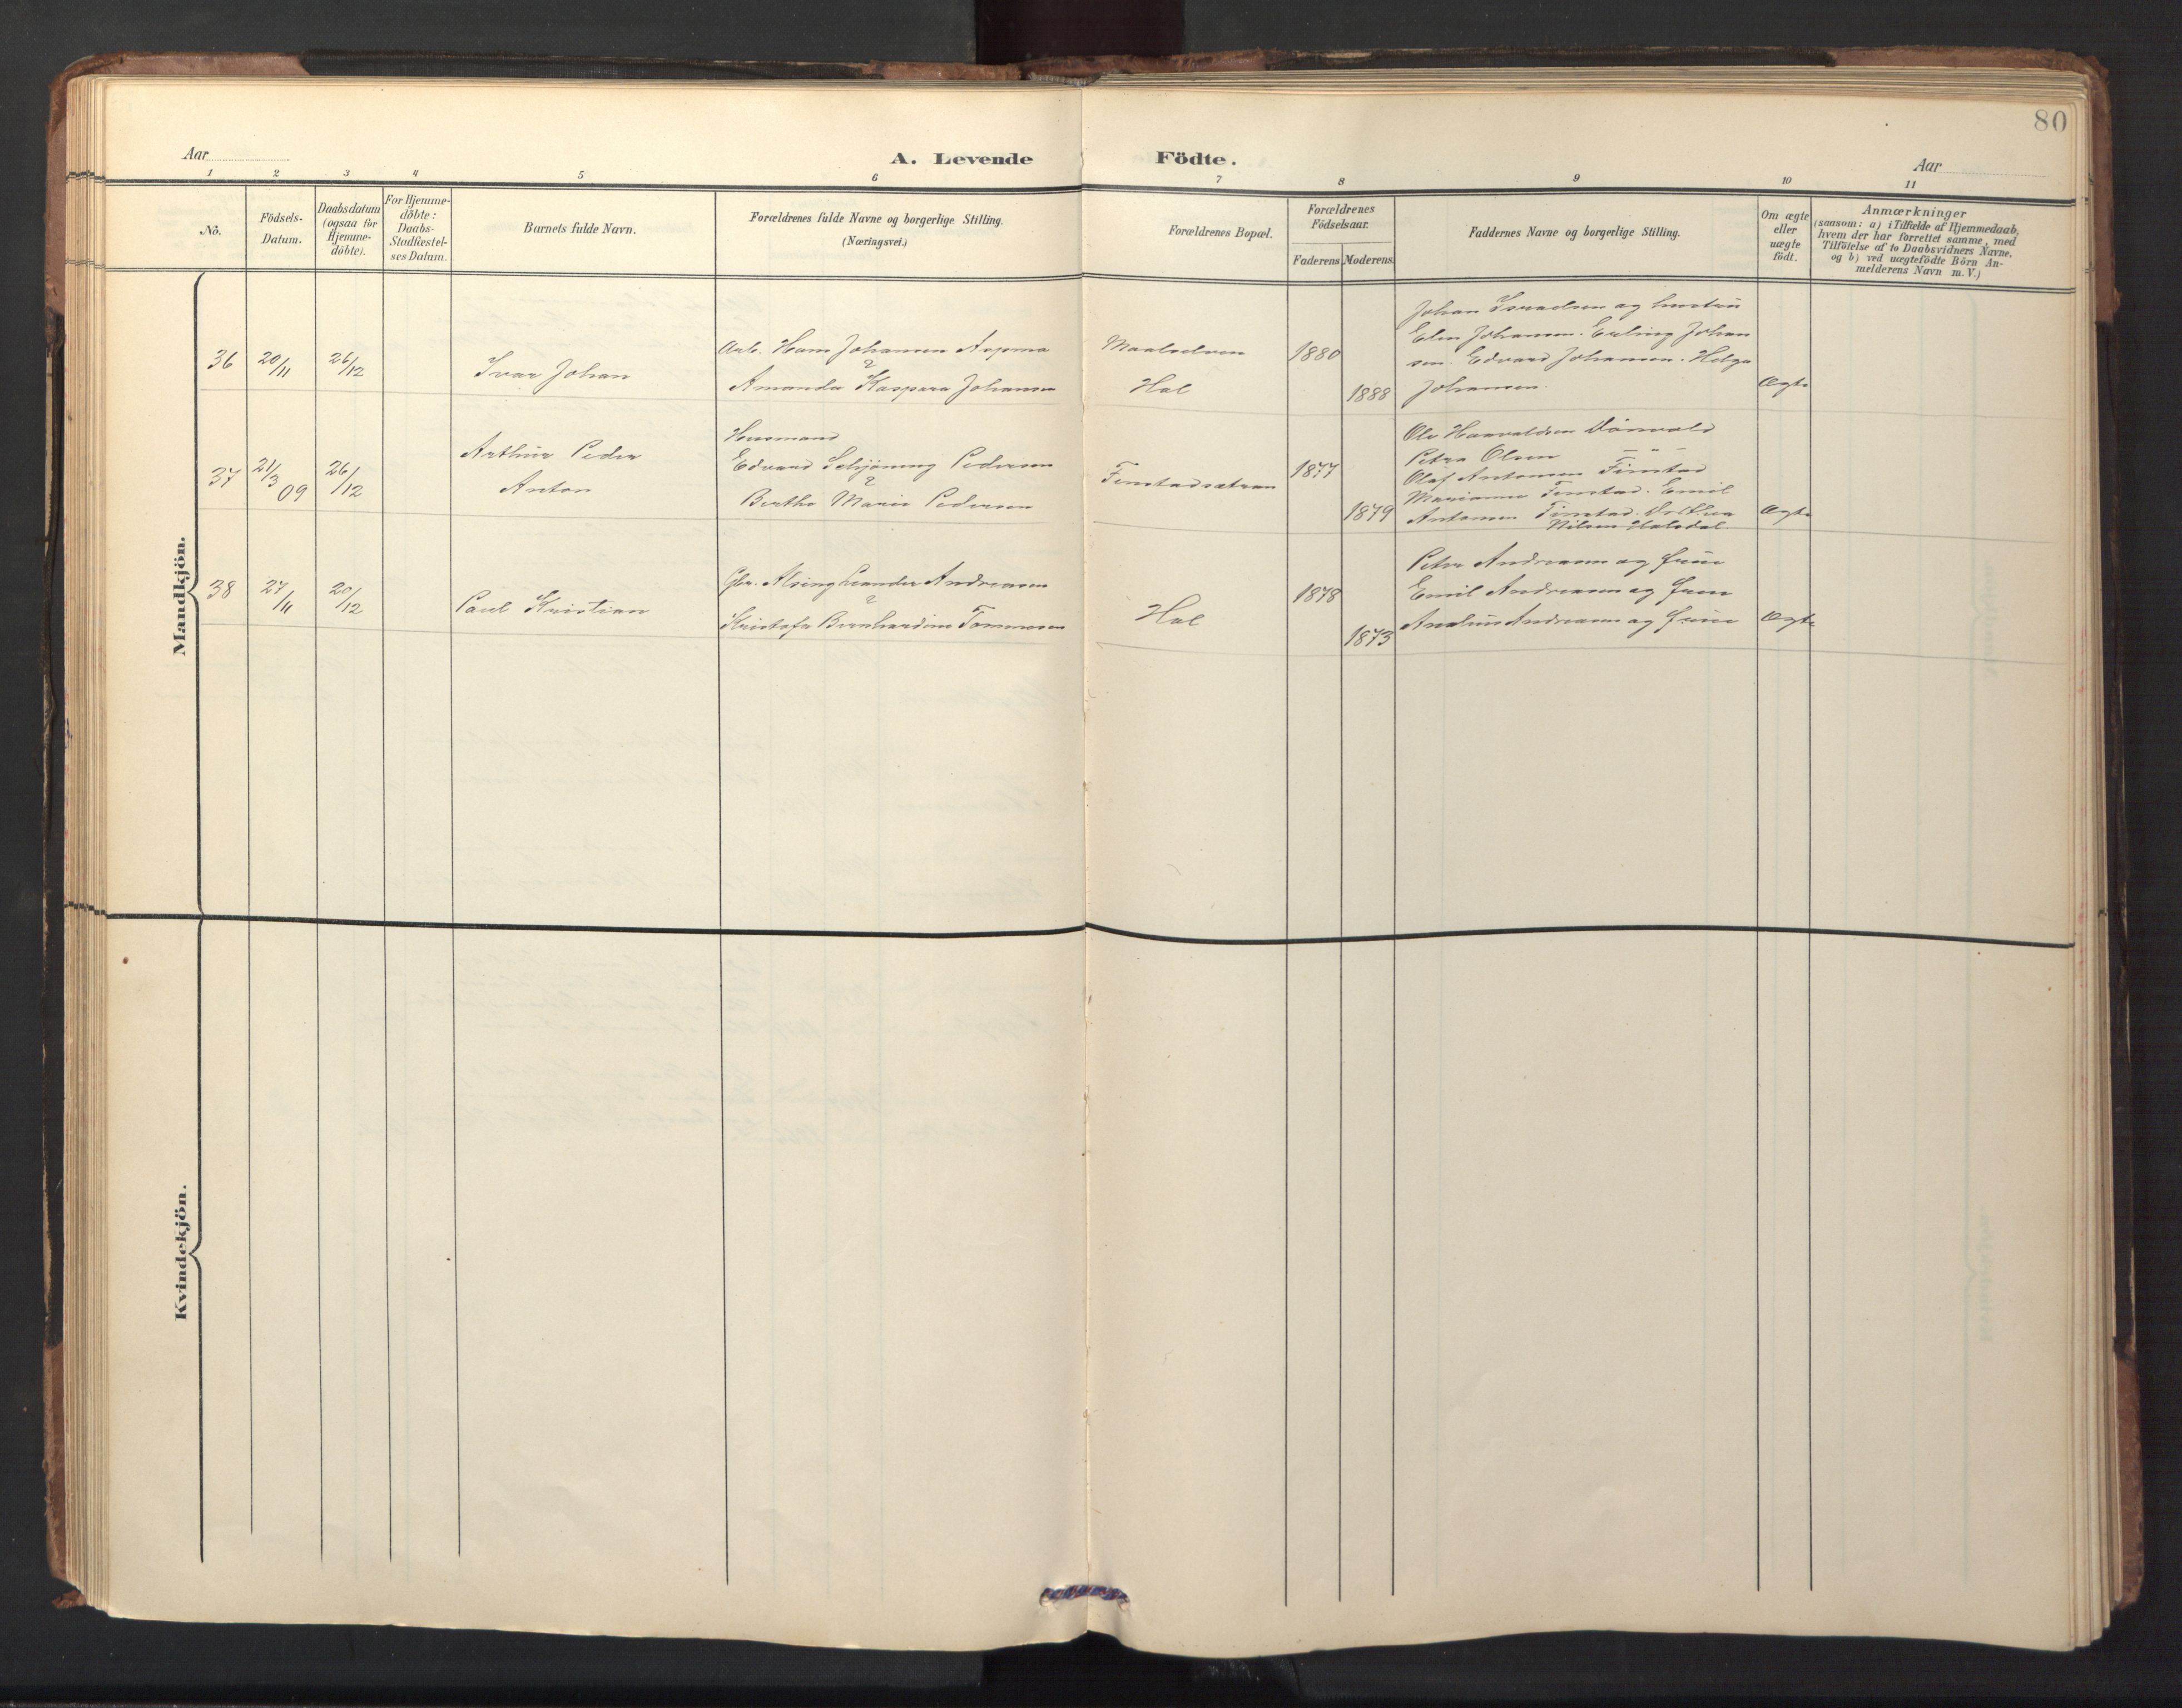 80
Aar
A. Levende Födte.
Aar
1 2 3 4 5 6 7 8 9 10 11
No.
Födsels-
Datum.
Daabsdatum
(ogsaa for
Hjemme-
döbte).
For Hjemme-
döbte:
Daabs-
Stadfæstel-
ses Datum.
Barnets fulde Navn.
Forældrenes fulde Navne og borgerlige Stilling.
(Næringsvei.)
Forældrenes Bopæl.
Forældrenes
Födselsaar.
Faderens Moderens.
Faddernes Navne og borgerlige Stilling.
Om ægte
eller
uægte
födt.
Anmærkninger
(saasom: a) i Tilfælde af Hjemmedaab,
hvem der har forrettet samme, med
Tilföielse af to Daabsvidners Navne,
og b) ved uægtefödte Börn An-
melderens Navn m. V.)
Mandkjön.
36
20/11
26/12
Ivar Johan
Arb. Hans Johansen Aspmo
&
Amanda Kaspara Johansen
Maalselven
Hol
1880
1888
Johan Israelsen og hustru
Elen Johansen. Erling Johan
sen. Edvard Johansen. Helga
Johansen.
Ægte
37
21/3 09
26/12
Arthur Peder
Anton
Husmand
Edvard Schjöning Pedersen
&
Berthe Marie Pedersen
Finstadsætran
1877
1879
Ole Haavaldsen
Petra Olsen — " —
Olaf Antonsen Finstad
Marianne Finstad. Emil
Antonsen Finstad. Dorthea
Nilsen
Ægte
38
27/11
20/12
Paul Kristian
Gbr. Alsing Leander Andreasen
&
Kristofa Bernhardine Tommesen
Hol
1878
1873
Peter Andreasen og frue
Emil Andreasen og frue
Andreasen og frue
Ægte
Kvindekjön.